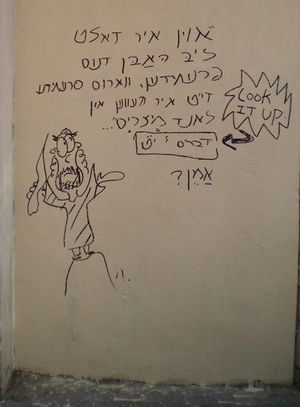 "און איר זאלט
ליב האָבן דעם
פרעמדען, ווארום פרעמדע
זייט איר געווען אין
לאנד מצרים"...
דברים י' י"ט
LOOK
IT UP!
אָמֵן?